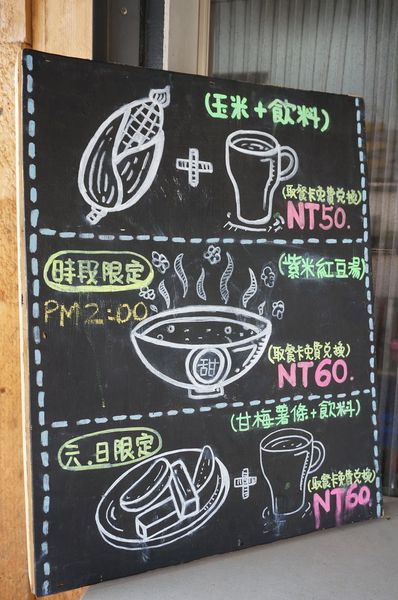 (玉米+飲料)
(取餐卡免費兌換)
NT50.
時段限定
PM2:00
(紫米紅豆湯)
甜
(取餐卡免費兌換)
NT60.
(甘梅薯條+飲料)
六.日限定
(取餐卡免費兌換)
NT60